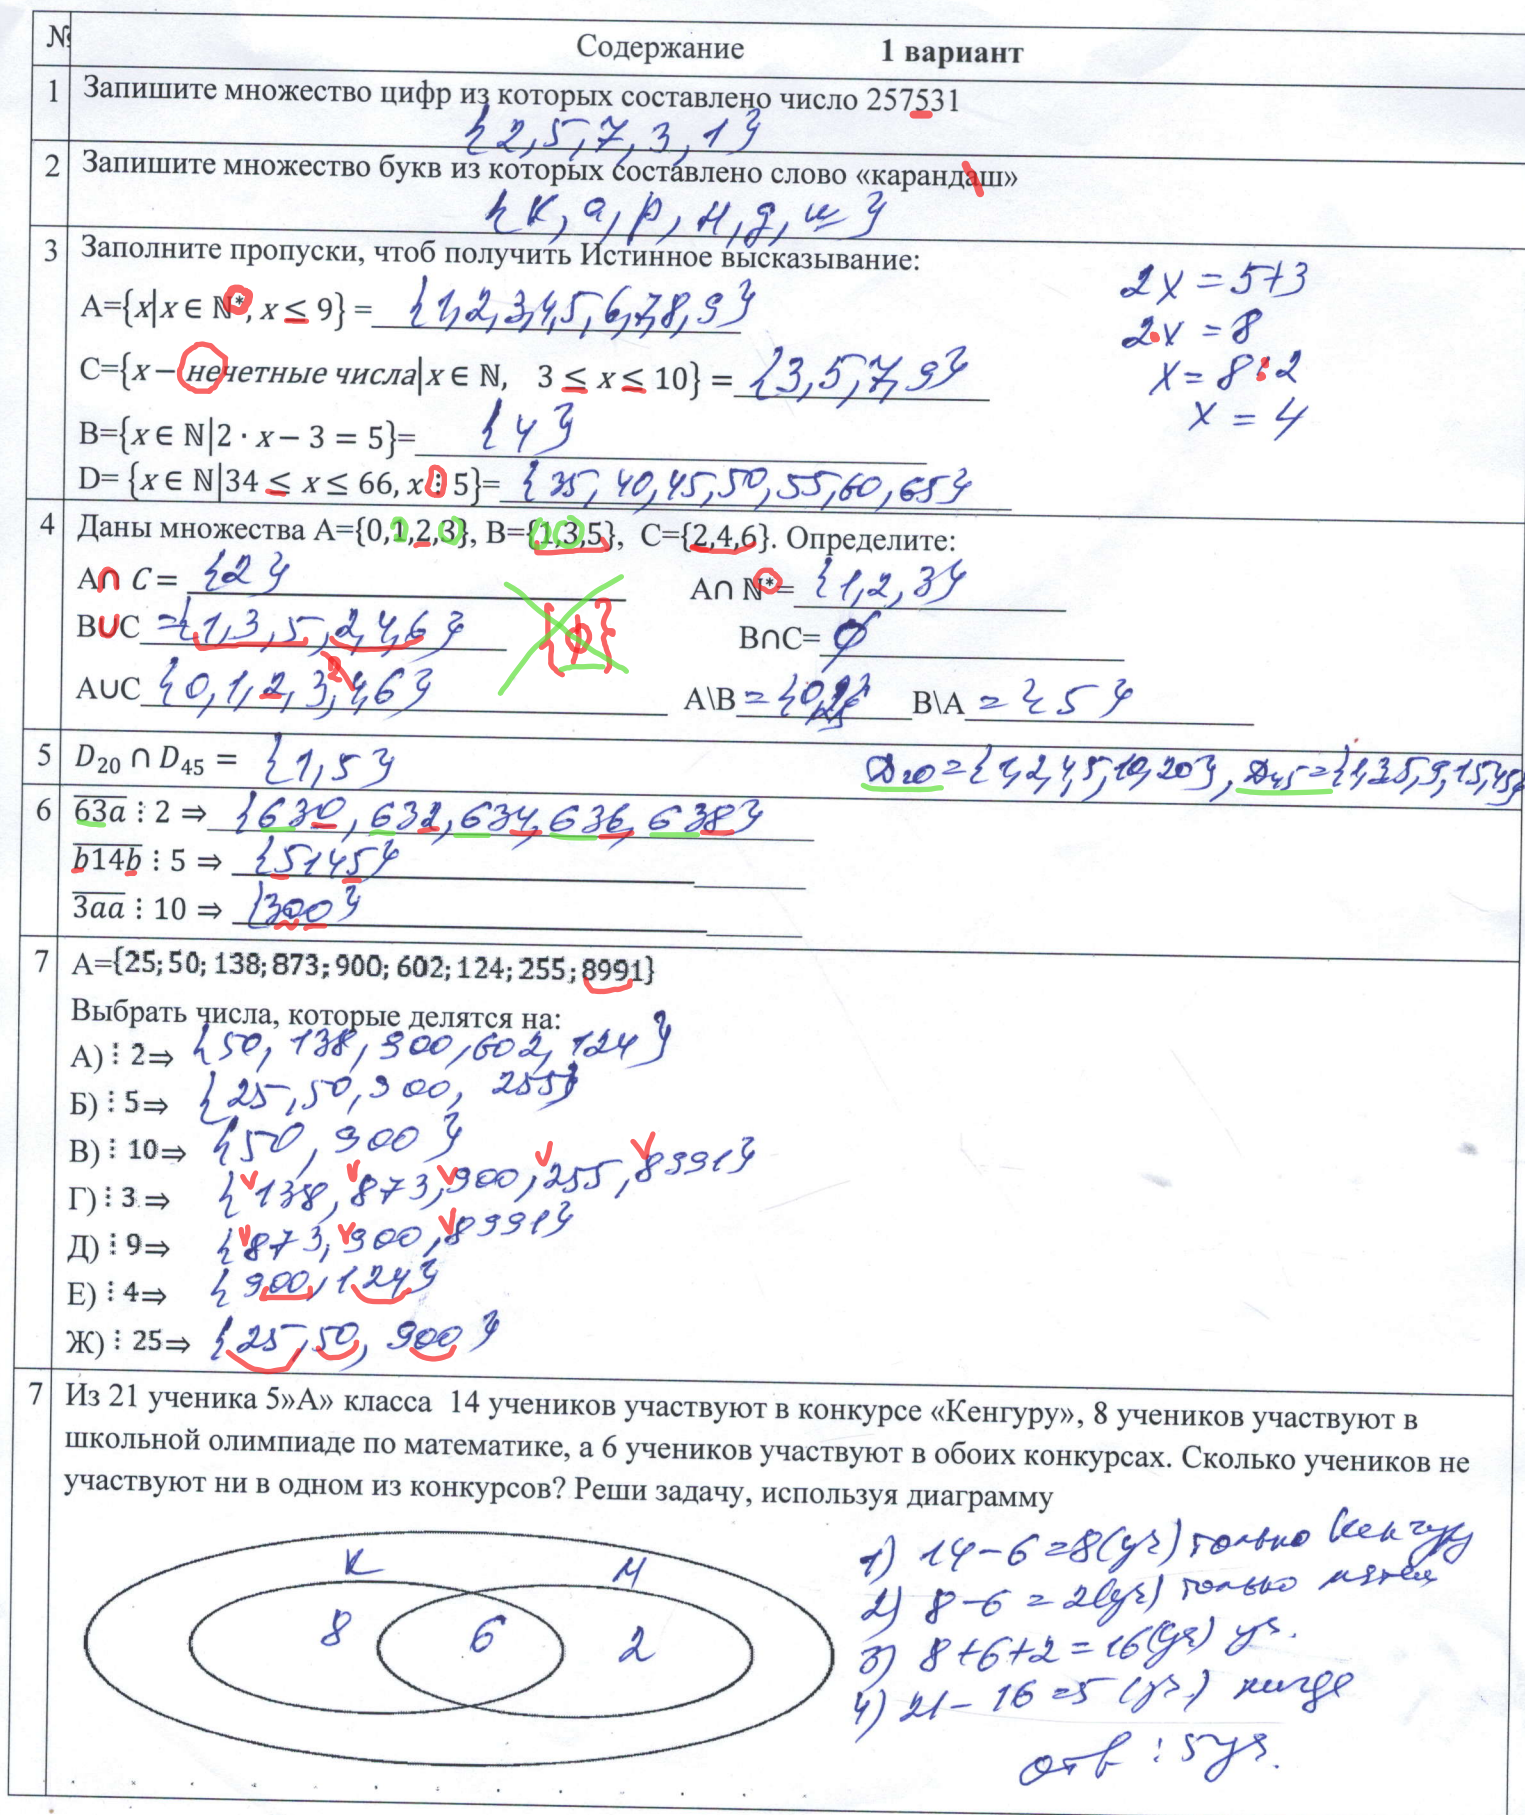 № Содержание 1 вариант
1 Запишите множество цифр из которых составлено число 257531
{2,5,7,3,1}
2 Запишите множество букв из которых составлено слово «карандаш»
{к, а, р, н, д, ш}
3 Заполните пропуски, чтоб получить Истинное высказывание:
A={x|x ∈ ℕ*, x ≤ 9} = {1,2,3,4,5,6,7,8,9}
C={x − нечетные числа|x ∈ ℕ, 3 ≤ x ≤ 10} = {3,5,7,9}
B={x ∈ ℕ|2 · x − 3 = 5}= {4}
D= {x ∈ ℕ|34 ≤ x ≤ 66, x ⋮ 5}= {35, 40, 45, 50, 55, 60, 65}
2x = 5+3
2·x = 8
x = 8:2
x = 4
4 Даны множества A={0,1,2,3}, B={1,3,5}, C={2,4,6}. Определите:
A∩ C = {2} A∩ ℕ*= {1,2,3}
B∪C ={1,3,5,2,4,6} {ϕ} B∩C= ∅
A∪C {0,1,2,3,4,6} A\B = {0,2} B\A = {5}
5 D₂₀ ∩ D₄₅ = {1,5} D₂₀={1,2,4,5,10,20}, D₄₅={1,3,5,9,15,45}
6 63a ⋮ 2 ⇒ {630, 632, 634, 636, 638}
b14b ⋮ 5 ⇒ {5145}
3aa ⋮ 10 ⇒ {300}
7 A={25; 50; 138; 873; 900; 602; 124; 255; 8991}
Выбрать числа, которые делятся на:
А) ⋮ 2⇒ {50, 138, 900, 602, 124}
Б) ⋮ 5⇒ {25, 50, 900, 255}
В) ⋮ 10⇒ {50, 900}
Г) ⋮ 3 ⇒ {138, 873, 900, 255, 8991}
Д) ⋮ 9⇒ {873, 900, 8991}
Е) ⋮ 4⇒ {900, 124}
Ж) ⋮ 25⇒ {25, 50, 900}
7 Из 21 ученика 5»А» класса 14 учеников участвуют в конкурсе «Кенгуру», 8 учеников участвуют в
школьной олимпиаде по математике, а 6 учеников участвуют в обоих конкурсах. Сколько учеников не
участвуют ни в одном из конкурсов? Реши задачу, используя диаграмму
К М
8 6 2
1) 14 − 6 = 8 (уч) только Кенгуру
2) 8 − 6 = 2 (уч) только матем
3) 8+6+2 = 16 (уч) уч.
4) 21 − 16 = 5 (уч.) нигде
отв : 5 уч.